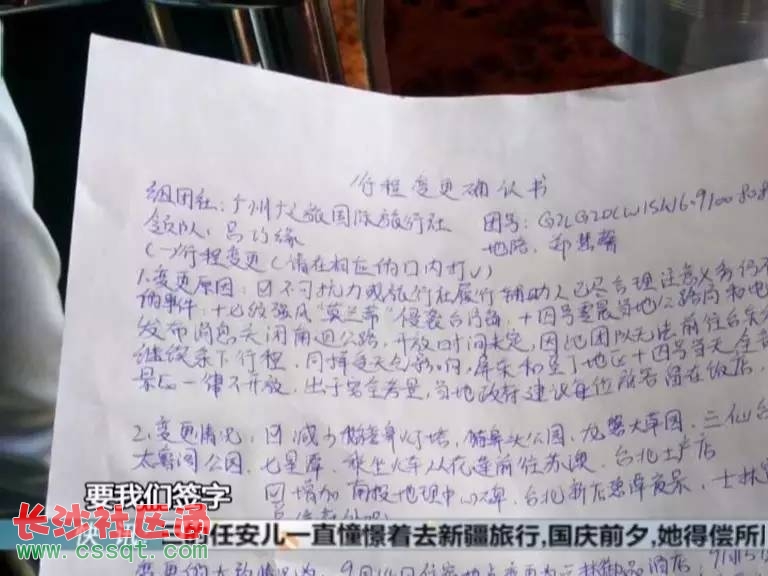 行程变更确认书
组团社：广州广之旅国际旅行社 团号：GZLGZDCW15W6-9100808
领队：吕巧缘 地陪：郑慧馨
(一)行程变更(请在相应的口内打√)
1.变更原因：☑不可抗力或旅行社履行辅助人已尽合理注意义务仍不
的事件：十七级强风"莫兰蒂"侵袭台湾海，十四号 当地公路局和电
发布消息关闭南迴公路，开放时间未定，因此团队无法前往台东
继续余下行程，同样受天气影响，屏东和垦丁地区十四号当天全
景区一律不开放，出于安全考量，当地政府建议每位旅客留在饭店，
2.变更情况：☑减少 鹅銮鼻灯塔，猫鼻头公园，龙磐大草园，三仙台
太鲁阁公园，七星潭，乘坐火车从花莲前往苏澳，台北土产店
☑增加 南投地理中心碑，台北新店碧潭夜景，士林
要我们签字
的任安儿一直憧憬着去新疆旅行,国庆前夕,她得偿所
长沙社区通
www.cssqt.com